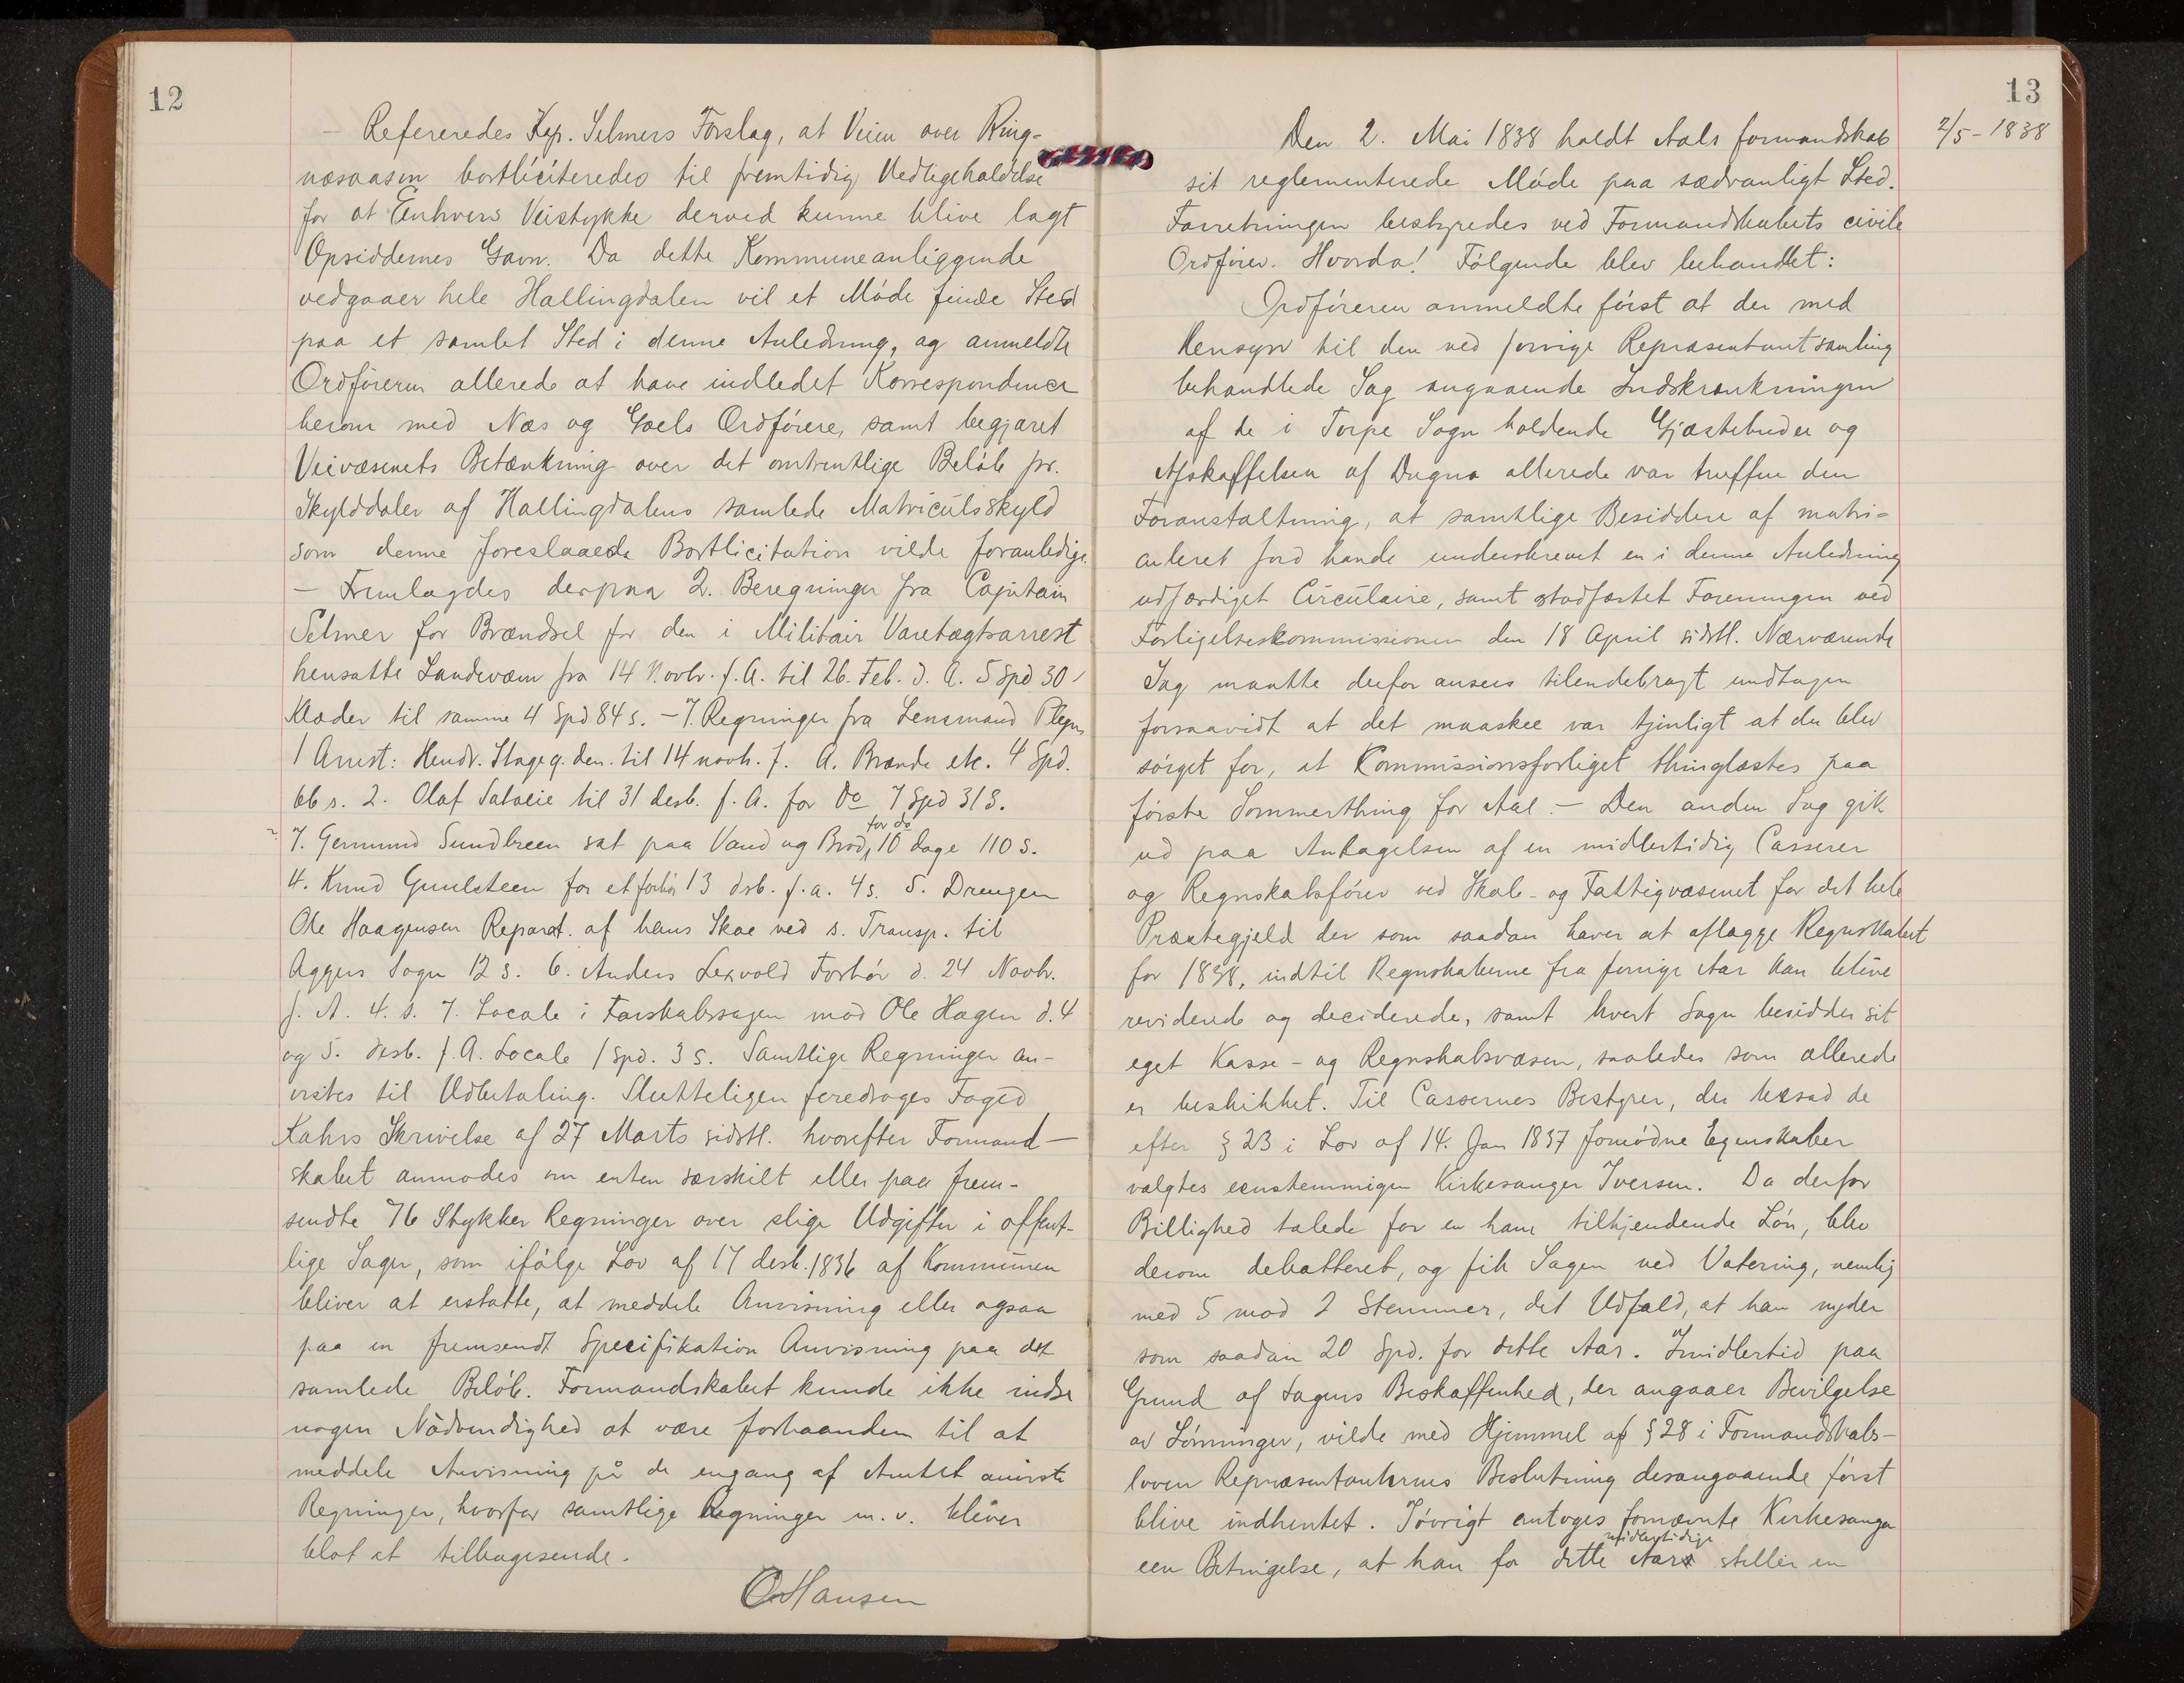 12
— Refereredes Kap. Selmers Forslag, at Veien over Ring-
næsaasen bortliciteredes til fremtidig Vedligeholdelse
for at Enhvers Veistykke derved kunne blive lagt
Opsiddernes Gavn. Da dette Kommuneanliggende
vedgaaer hele Hallingdalen vil et Møde finde Sted
paa et samlet Sted i denne Anledning, og anmeldte
Ordføreren allerede at have indledet Korrespondence
herom med Næs og Goels Ordførere, samt begjæret
Veivæsenets Betænkning over det omtrentlige Beløb pr.
Skylddaler af Hallingdalens samlede Matriculsskyld
som denne foreslaaede Bortlicitation vilde foranledige.
— Fremlagdes derpaa 2. Beregninger fra Capitain
Selmer for Brændsel for den i Militair Varetægtsarrest
hensatte Landeværn fra 14 Novbr. f. A. til 26. Feb. d. A. 5 Spd 30
Klæder til samme 4 Spd 84 s. — 7. Regninger fra Lensmand
1 Arrest: Hendr. Stageg. den. til 14 novb. f. A. Brænde etc. 4 Spd.
66 s. 2. Olaf Sataeie til 31 desb. f. A. for Do 7 Spd 31 S.
7. Germund Sundbreen sat paa Vand og Brød, for do 10 dage 110 s.
4. Knud Gunlsteen for et forhør 13 dsb. f. a. 4 s. 5. Drengen
Ole Haagensen Reparat. af hans Skoe ved s. Transp. til
Aggers Sogn 12 s. 6. Anders Lexvold Forhør d. 24 Novbr.
f. A. 4. s. 7. Locale i Farskabssagen mod Ole Hagen d. 4
og 5. desb. f. A. Locale 1 Spd. 3 s. Samtlige Regninger an-
vistes til Udbetaling. Slutteligen foredroges Foged
Kahrs Skrivelse af 27 Marts sidstl. hvorefter Formand-
skabet anmodes om enten særskilt eller paa frem-
sendte 76 Stykker Regninger over slige Udgifter i offent-
lige Sager, som ifølge Lov af 17 desb. 1836 af Kommunen
bliver at erstatte, at meddele Anvisning eller ogsaa
paa en fremsendt Specifikation Anvisning paa det
samlede Beløb. Formandskabet kunde ikke indse
nogen Nødvendighed at være forhaanden til at
meddele Anvisning på de engang af Amtet anviste
Regninger, hvorfor samtlige Regninger m. v. bliver
blot at tilbagesende.
O Hansen
13
2/5 - 1838
Den 2. Mai 1838 holdt Aals formandskab
sit reglementerede Møde paa sædvanligt Sted.
Forretningen bestyredes ved Formandskabets civile
Ordfører. Hvorda! Følgende blev behandlet:
Ordføreren anmeldte først at der med
Hensyn til den ved forrige Repræsentantsamling
behandlede Sag angaaende Indskrænkningen
af de i Torpe Sogn holdende Gjæstebuder og
Afskaffelsen af Dugna allerede var truffen den
Foranstaltning, at samtlige Besiddere af matri-
culeret Jord havde underskrevet en i denne Anledning
udfærdiget Circulaire, samt stadfæstet Foreningen ved
Forligelseskommissionen den 18 April sidstl. Nærværende
Sag maatte derfor ansees tilendebragt undtagen
forsaavidt at det maaskee var tjenligt at der blev
sørget for, at Kommissionsforliget thinglæstes paa
første Sommerthing for Aal. — Den anden Sag gik
ud paa Antagelsen af en midlertidig Casserer
og Regnskabsfører ved Skole- og Fattigvæsenet for det hele
Præstegjeld der som saadan haver at aflægge Regnskabet
for 1838, indtil Regnskaberne fra forrige Aar kan blive
reviderede og deciderede, samt hvert Sogn besidder sit
eget Kasse- og Regnskabsvæsen, saaledes som allerede
er beskikket. Til Cassernes Bestyrer, der besad de
efter § 23 i Lov af 14. Jan 1837 fornødne Egenskaber
valgtes eenstemmigen Kirkesanger Iversen. Da derfor
Billighed talede for en ham tilkjendende Løn, blev
derom debatteret, og fik Sagen ved Votering, nemlig
med 5 mod 2 Stemmer, det Udfald, at han nyder
som saadan 20 Spd. for dette Aar. Imidlertid paa
Grund af Sagens Beskaffenhed, der angaaer Bevilgelse
av Lønninger, vilde med Hjemmel af § 28 i Formandskabs-
loven Repræsentanternes Beslutning desangaaende først
blive indhentet. Iøvrigt antoges fornævnte Kirkesanger
een Betingelse, at han for dette midlertidige Aar stiller en